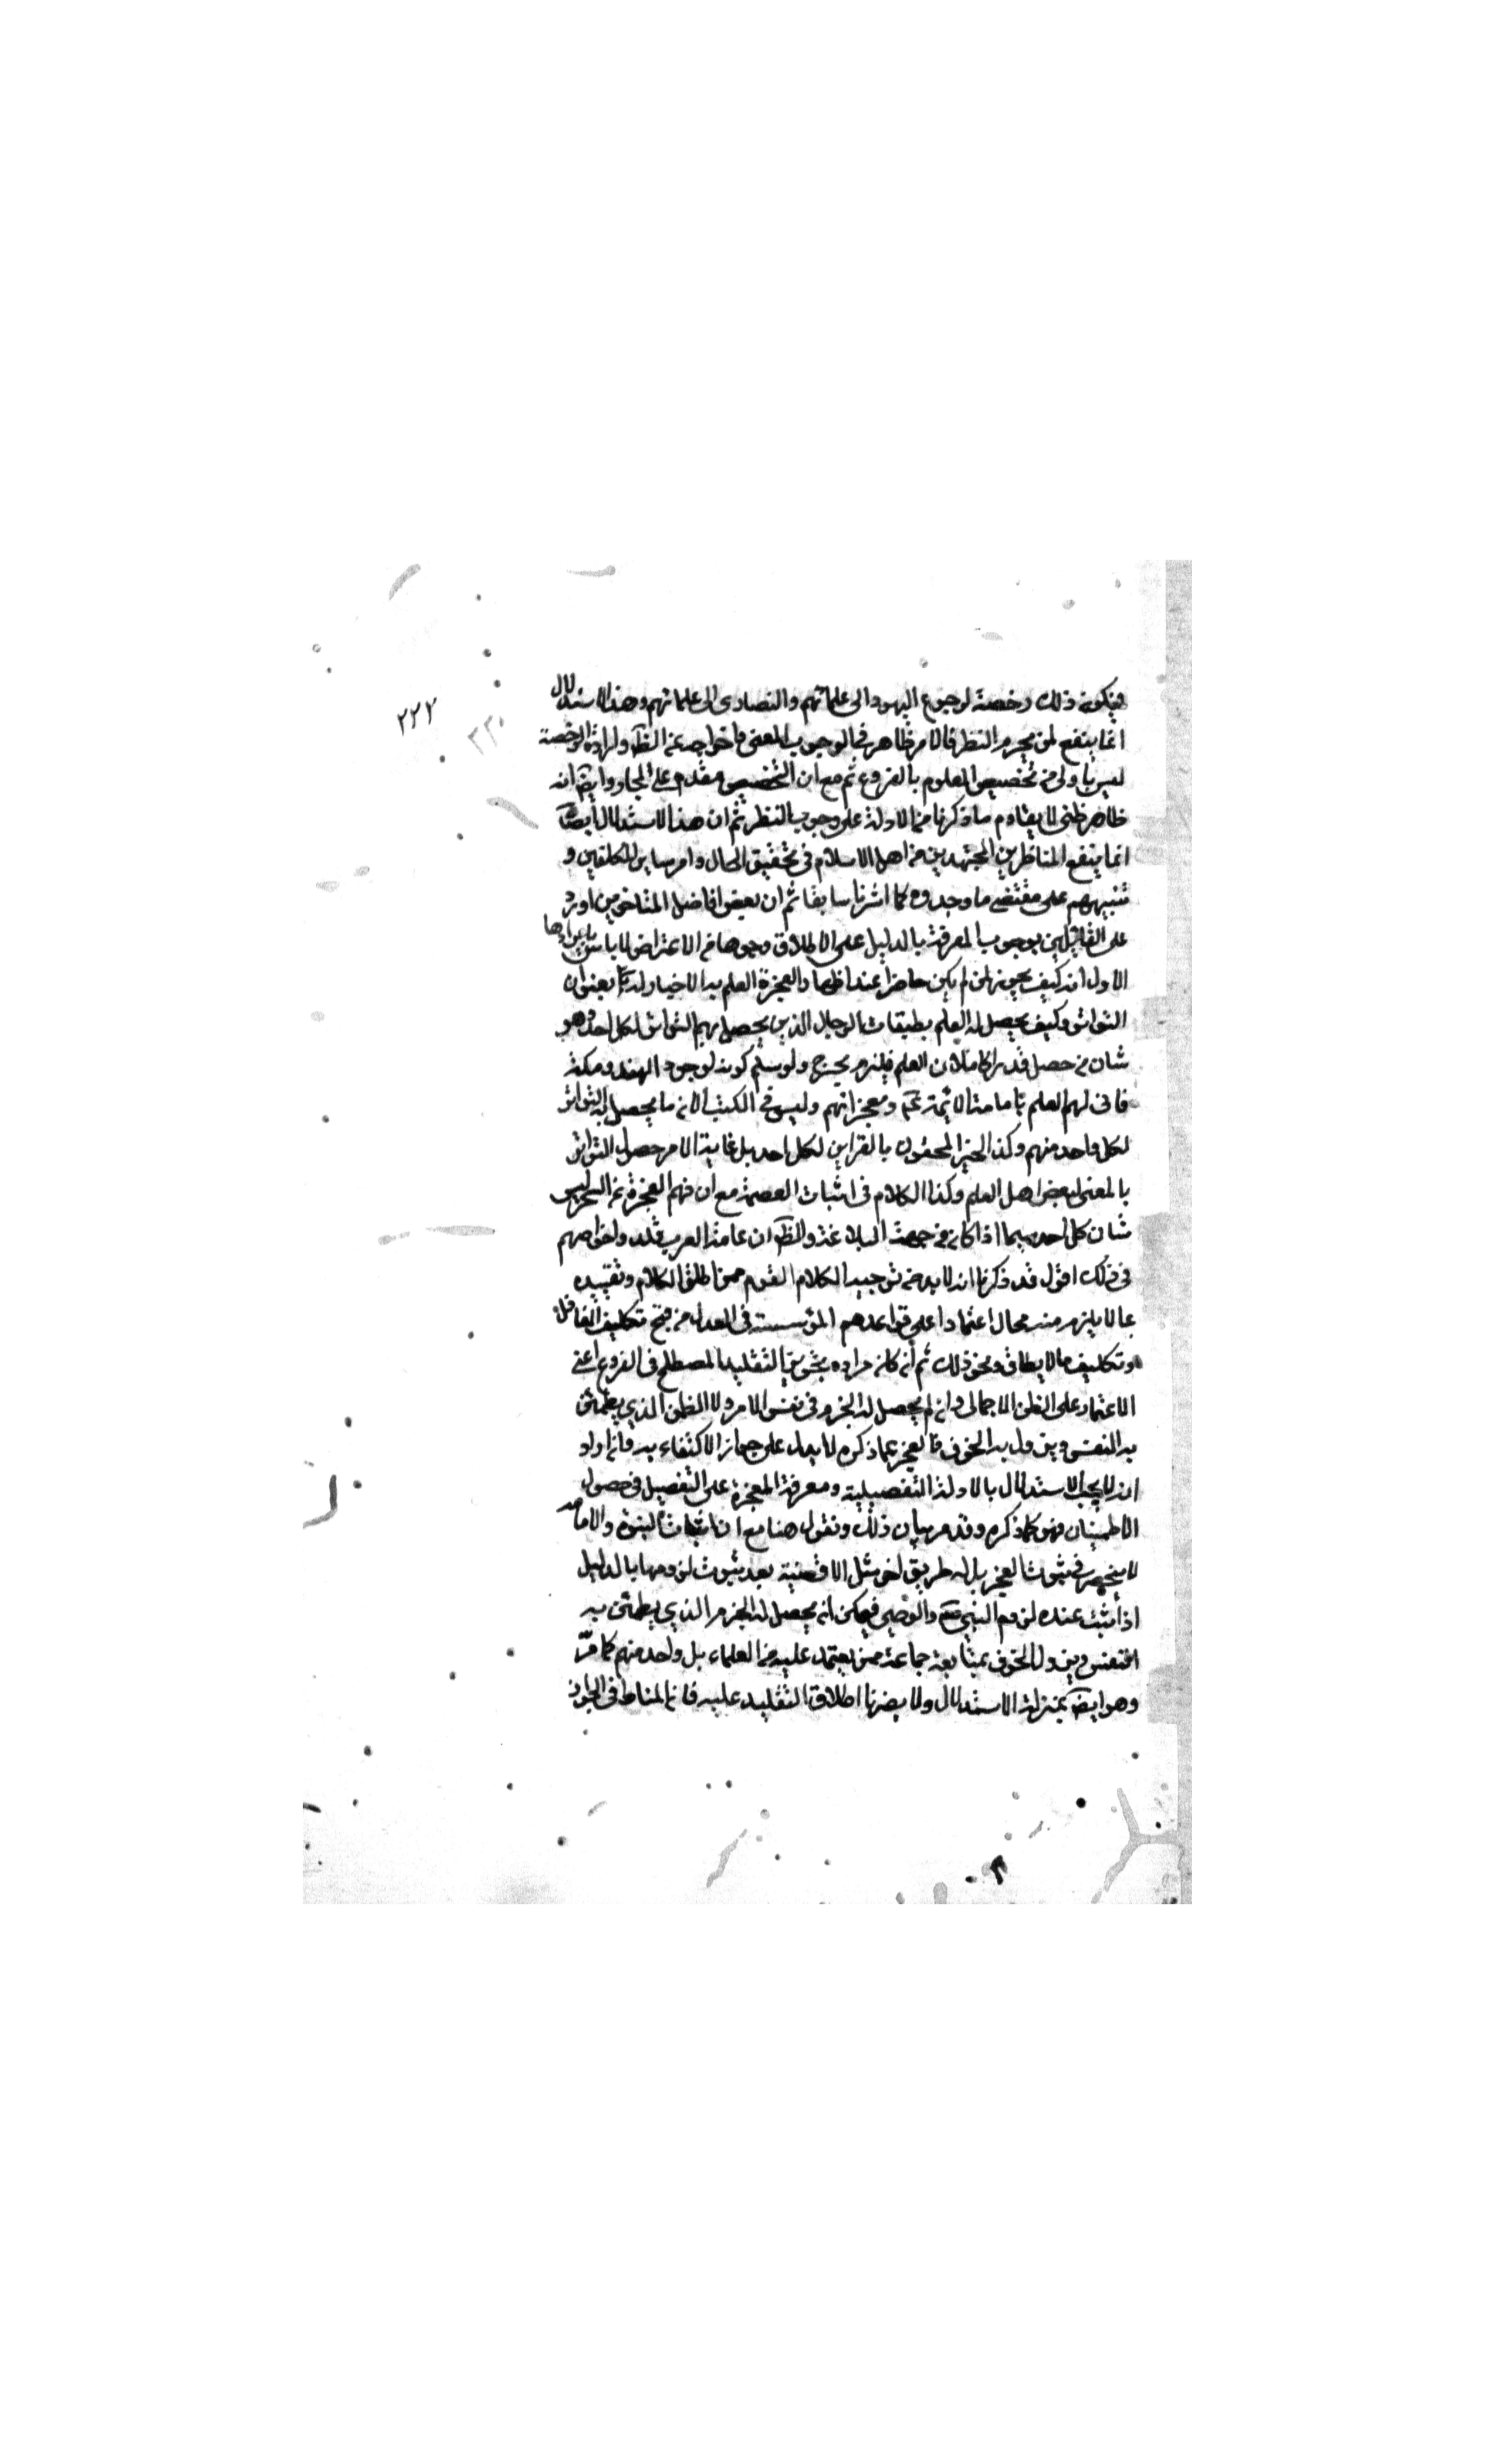 فيكون ذلك رخصة لرجوع اليهود الى علمائهم والنصارى الى علمائهم وهذا الاستدلال
انما ينفع لمن يحرم النظر فالامر ظاهر في الوجوب المعنى فاخراجه عن الظ وارادة الرخصة
ليس باولى من تخصيص المعلوم بالفروع ثم مع ان التخصيص مقدم على المجاز وايض انه
ظاهر ظنى لا يقاوم ما ذكرنا من الادلة على وجوب النظر ثم ان هذا الاستدلال ايضا
انما ينفع المناظرين المجتهدين من اهل الاسلام فى تحقيق الحال وامر ساير المكلفين و
تنبيههم على مقتضى ما وجدوه كما اشرنا سابقا ثم ان بعض افاضل المتاخرين اورد
على القائلين بوجوب المعرفة بالدليل على الاطلاق وجوها من الاعتراض لا باس بايرادها
الاول انه كيف يجوز لمن لم يكن حاضرا عند اظهار المعجزة العلم به الاخبار بعنوان
التواتر وكيف يحصل له العلم بطبقات الرجال الذين يحصل بهم التواتر لكل احد وهو
شان من حصل قدرا كاملا من العلم فيلزم الحرج ولو سلم كونه لوجود الهند ومكة
فانى لهم العلم بامامة الائمة ع ومعجزاتهم وليس فى الكتب الان ما يحصل به التواتر
لكل واحد منهم وكذا الخبر المحفوف بالقراين لكل احد بل غاية الامر حصول التواتر
بالمعنى لبعض اهل العلم وكذا الكلام فى اثبات العصمة مع ان فهم المعجزة عن السحر ليس
شان كل احد سيما اذا كان من جهة البلاغة والظ ان عامة العرب قلدوا خواصهم
فى ذلك اقول قد ذكرنا انه لا بد من توجيه الكلام القوم ممن اطلق الكلام وتقييده
بما لا يلزم منه محال اعتمادا على قواعدهم المؤسسة فى العدل من قبح تكليف الغافل
وتكليف ما لا يطاق ونحو ذلك ثم ان كان مراده بتجويز التقليد المصطلح فى الفروع اعنى
الاعتماد على الظن الاجمالى وان لم يحصل له الجزم فى نفس الامر ولا الظن الذي يطمئن
به النفس ويزول به الخوف فالعجز عما ذكره لا يدل على جواز الاكتفاء به وان اراد
انه لا يجب الاستدلال بالادلة التفصيلية ومعرفة المعجزة على التفصيل فى حصول
الاطمينان فهو كما ذكره وقد مر بيان ذلك ونقول هنا مع ان اثبات النبوة والامامة
لا ينحصر فى ثبوت المعجز بل له طريق اخر مثل الافضلية بعد ثبوت لزومها بالدليل
اذا ثبت عنده لزوم النبي ص والوصي فيمكن ان يحصل له الجزم الذي يطمئن به
النفس ويزول الخوف بمتابعة جماعة ممن يعتمد عليه من العلماء بل واحد منهم كما مرّ
وهو ايض بمنزلة الاستدلال ولا يضرنا اطلاق التقليد عليه فان المناط فى الجواز
٢٢٢
٢٣٠